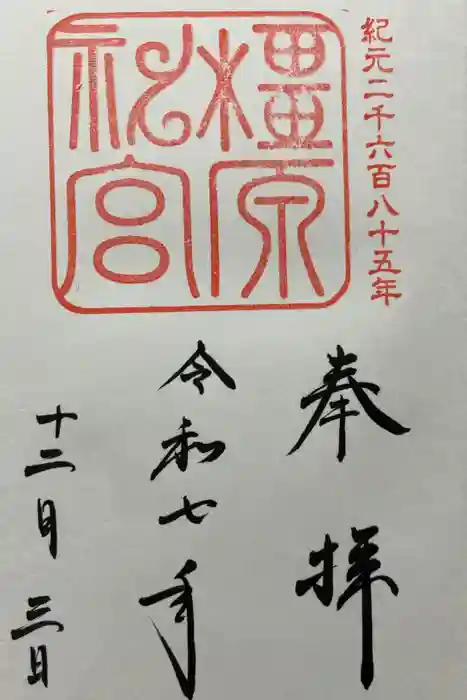 紀元二千六百八十五年
橿原
神宮
奉拝
令和七年
十二月三日